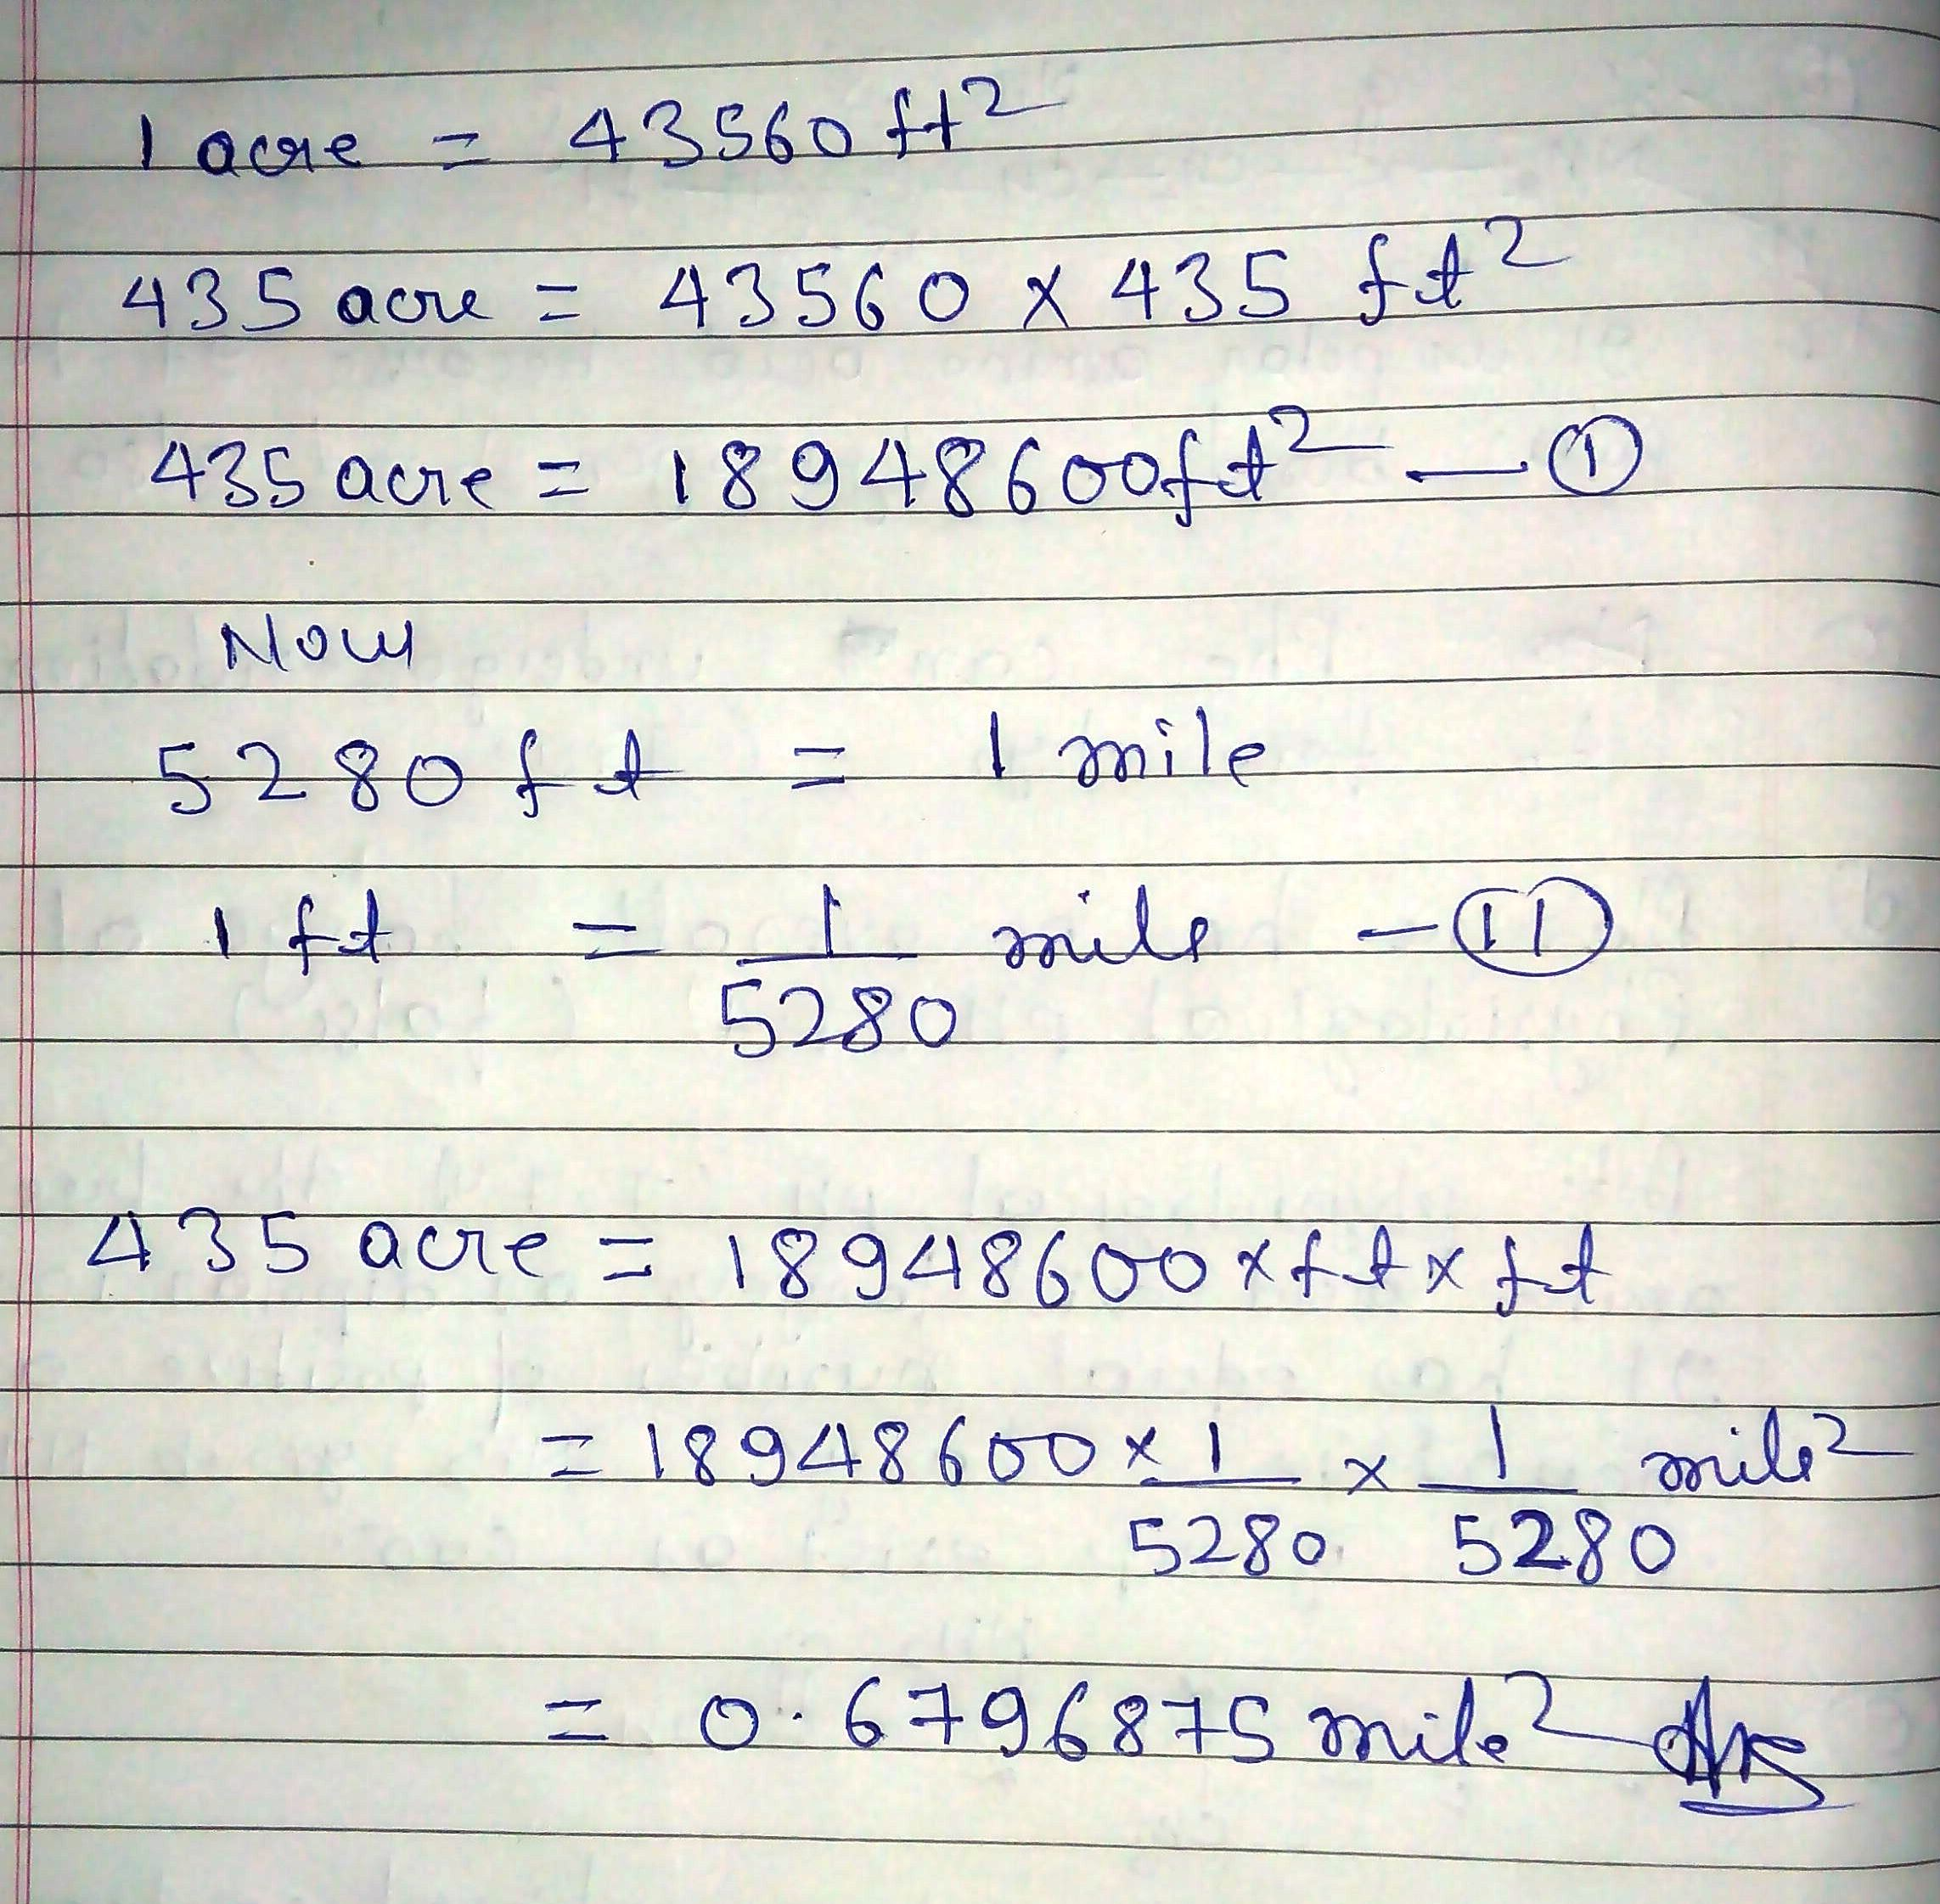 1 acre = 43560 ft²
435 acre = 43560 × 435 ft²
435 acre = 18948600 ft² — ①
Now
5280 ft = 1 mile
1 ft = 1/5280 mile — (11)
435 acre = 18948600 × ft × ft
= 18948600 × 1/5280 × 1/5280 mile²
= 0.6796875 mile² Ans